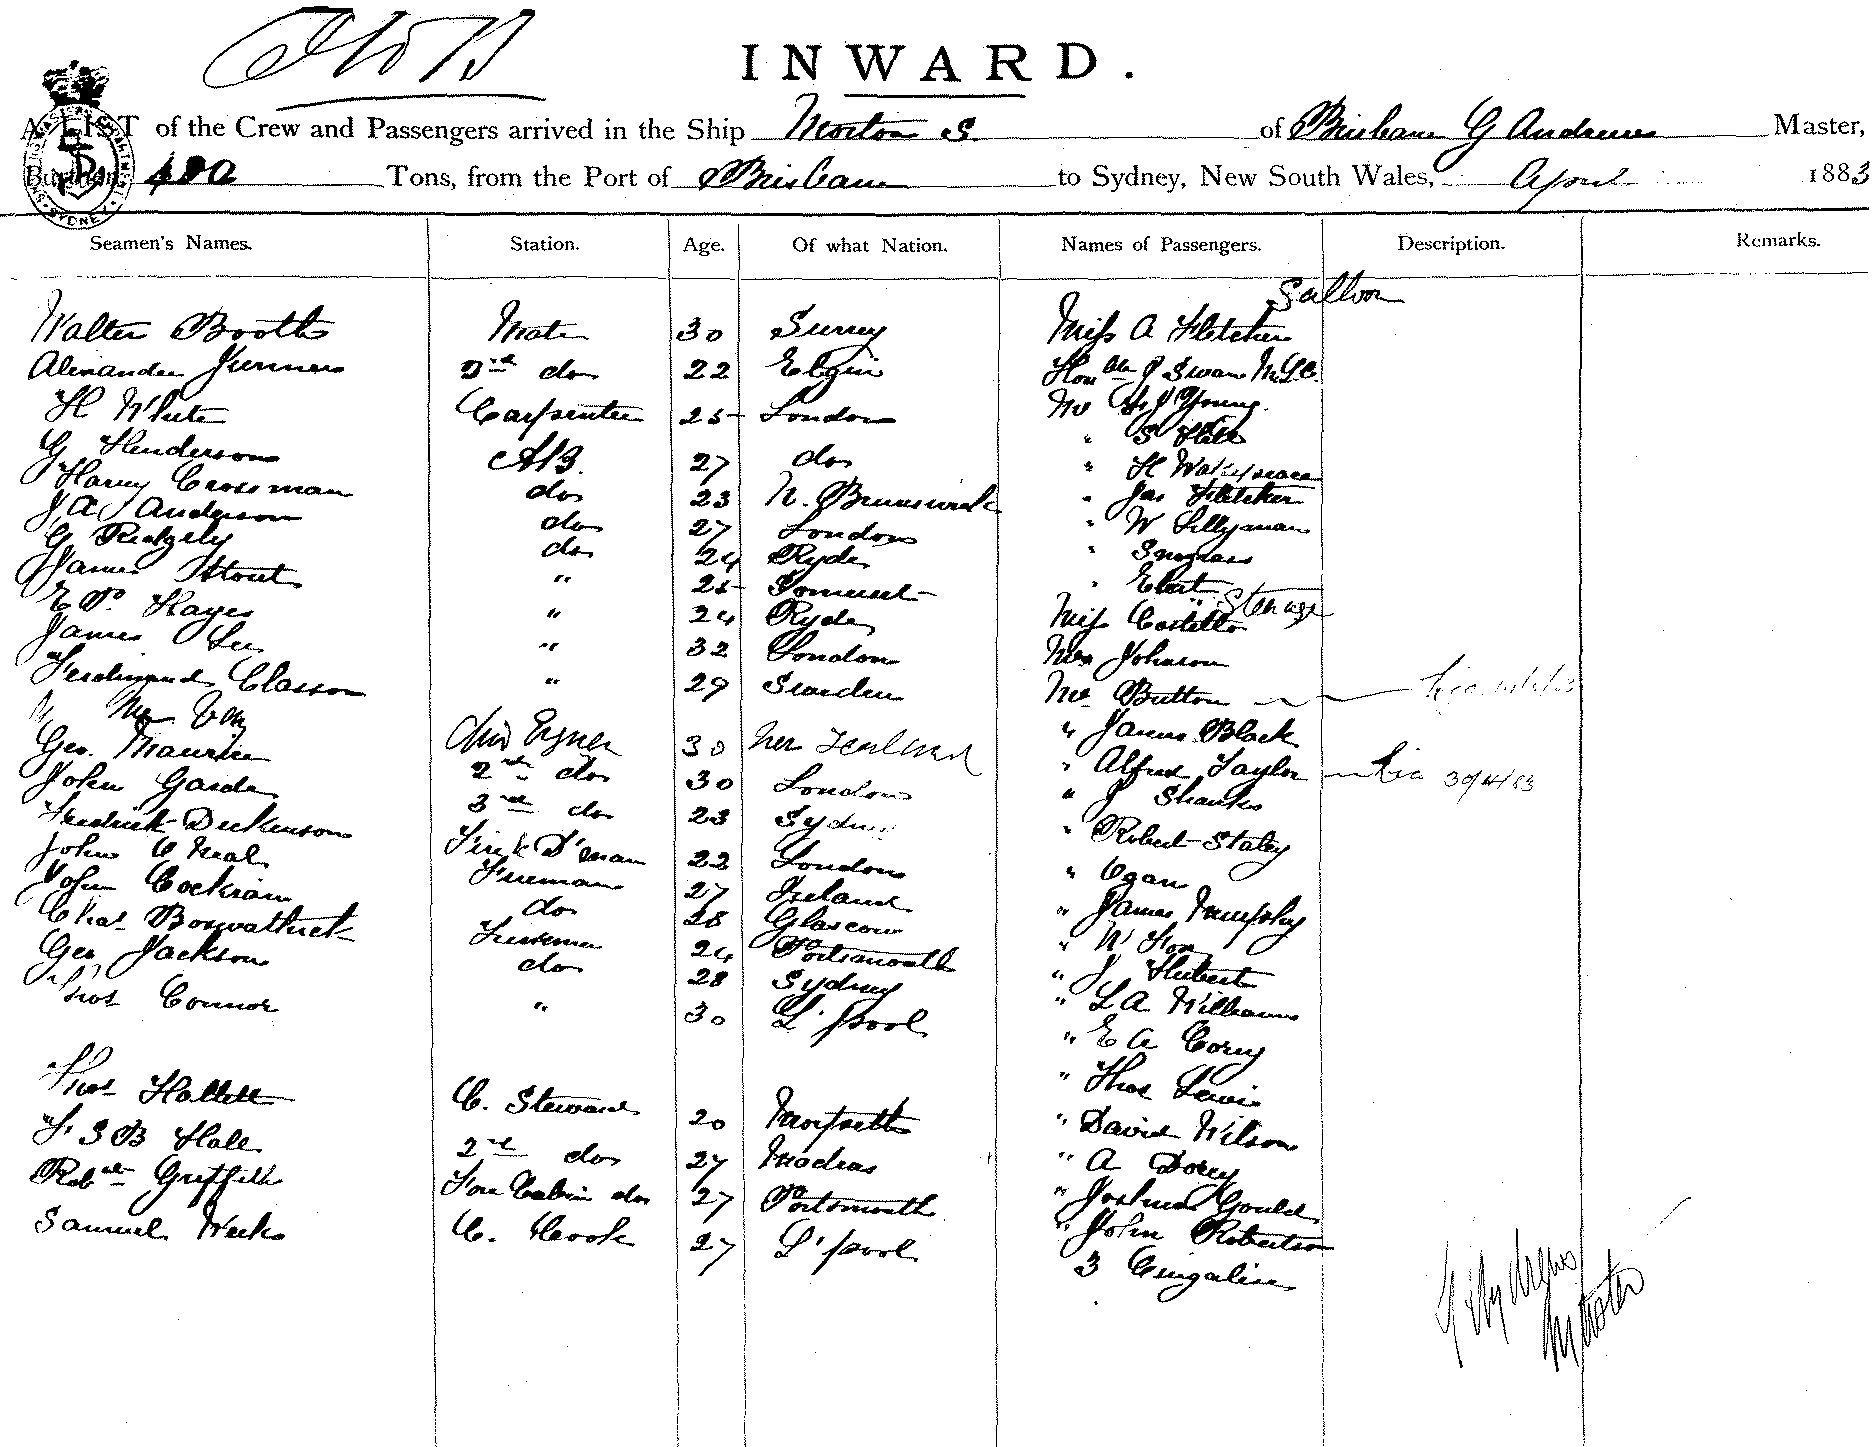 INWARD.
A LIST of the Crew and Passengers arrived in the Ship Morton S. of Brisbane G Andrews Master,
Burthen 480 Tons, from the Port of Brisbane to Sydney, New South Wales, April 1883
Seamen's Names. Station. Age. Of what Nation. Names of Passengers. Description. Remarks.
Saloon
Walter Booth Mate 30 Surrey Miss A Fletcher
Alexander 2nd do 22 Elgin Honble J Swan M.L.C.
H White Carpenter 25 London Mr Young
G Henderson AB. 27 do " S Hill
Harry Crossman do 23 N. Brunswick " H
J A Anderson do 27 London " Jas Fletcher
G Ridgely do 24 Ryde " W Lillyman
James Stout " 25 Somerset "
E P. Hayes " 24 Ryde " Ebert
Steerage
James Lee " 32 London Miss Costello
Ferdinand Classon " 29 Sweden Mrs Johnson
Mr Button
Geo. Maurice 30 New Zealand " James Black
John Garde 2nd do 30 London " Alfred Taylor 30/4/83
Fredrick Dickenson 3rd do 23 Sydney " J Shanks
John O Neal D'man 22 London " Robert Staley
John Cockran Fireman 27 Ireland " Ogan
Chas do 28 Glascow " James Murphy
Geo Jackson Fireman 24 Portsmouth " W Fox
do 28 Sydney " J Hubert
Thos Connor " 30 L'pool " L A Williams
" E A Corey
Thos Hallett C. Steward 20 " Thos Lewis
F S B Hall 2nd do 27 Madras " David Wilson
Robt Griffith Fore Cabin do 27 Portsmouth " A Dorey
Samuel Weeks C. Cook 27 L'pool " Joshua Gould
" John Robertson
3 Cingalese
G Andrews
Master